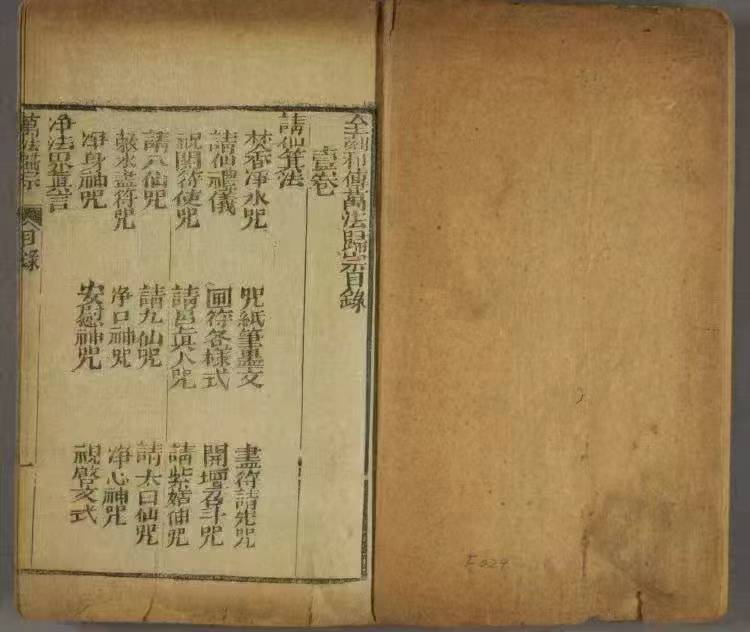 全訓和傳萬法歸宗目錄
壹卷
請仙箕法
焚香凈水咒 咒紙筆墨文 畫符請咒
請仙禮儀 画符各樣式 開壇召斗咒
祝開符使咒 請呂真人咒 請紫姑仙咒
請八仙咒 請九仙咒 請太白仙咒
敕水畫符咒 凈口神咒 凈心神咒
凈身神咒 安慰神咒 祝啓文式
凈法界真言
萬法歸宗 目錄 一
F024